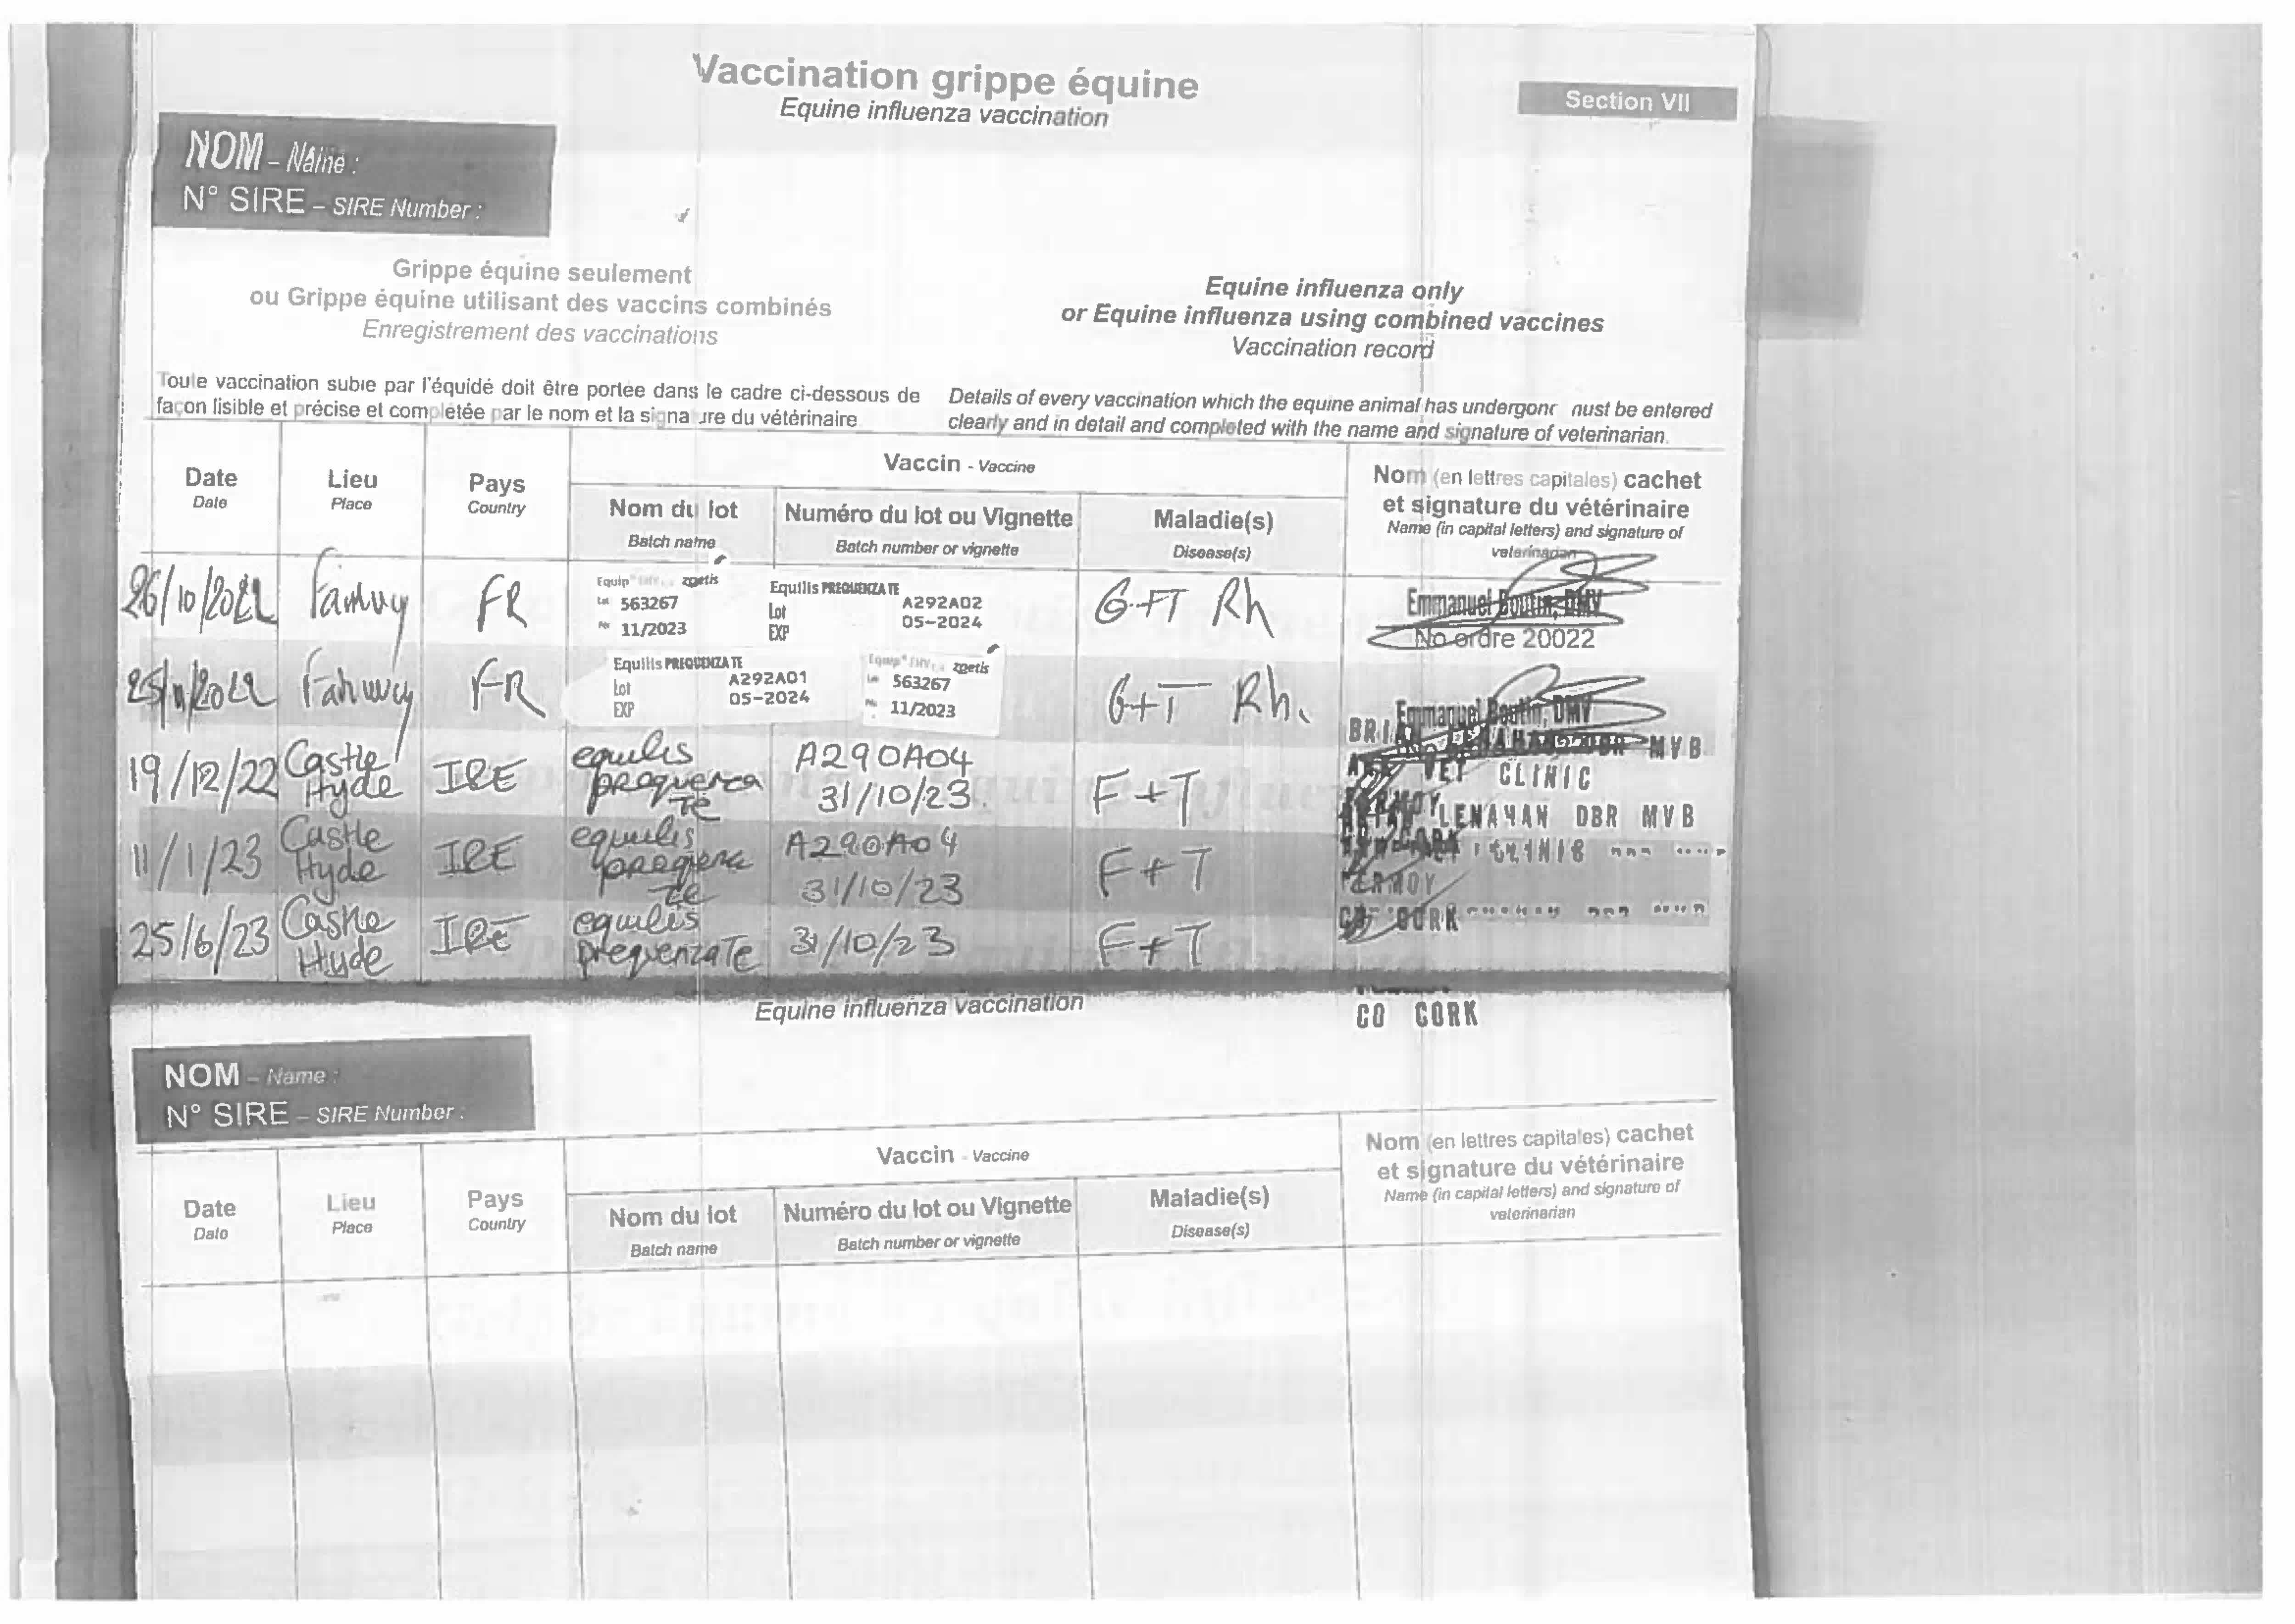 Vaccination grippe équine
Equine influenza vaccination
Section VII
NOM – Name :
N° SIRE – SIRE Number :
Grippe équine seulement
ou Grippe équine utilisant des vaccins combinés
Enregistrement des vaccinations
Equine influenza only
or Equine influenza using combined vaccines
Vaccination record
Toute vaccination subie par l'équidé doit être portee dans le cadre ci-dessous de
façon lisible et précise et complétée par le nom et la signature du vétérinaire
Details of every vaccination which the equine animal has undergone must be entered
clearly and in detail and completed with the name and signature of veterinarian.
Date
Date
Lieu
Place
Pays
Country
Vaccin - Vaccine
Nom du lot
Batch name
Numéro du lot ou Vignette
Batch number or vignette
Maladie(s)
Disease(s)
Nom (en lettres capitales) cachet
et signature du vétérinaire
Name (in capital letters) and signature of
veterinarian
26/10/2022 FR
Equip zoetis
Lot 563267
11/2023
Equilis PREQUENZA TE
Lot A292A02
EXP 05-2024
G+T Rh
Emmanuel Boutin, DMV
No ordre 20022
25/11/2022 FR
Equilis PREQUENZA TE
Lot A292A01
EXP 05-2024
Equip EHV zoetis
563267
11/2023
G+T Rh.
Emmanuel Boutin, DMV
19/12/22 Castle Hyde IRE equilis prequenza TE A290A04 31/10/23. F+T
BRIAN MVB
VET CLINIC
FERMOY
11/1/23 Castle Hyde IRE equilis TE A290A04 31/10/23 F+T
LENAHAN DBR MVB
CLINIC
FERMOY
CO CORK
25/6/23 Castle Hyde IRE equilis prequenza Te 31/10/23 F+T
Equine influenza vaccination
CO CORK
NOM – Name :
N° SIRE – SIRE Number :
Date
Date
Lieu
Place
Pays
Country
Vaccin - Vaccine
Nom du lot
Batch name
Numéro du lot ou Vignette
Batch number or vignette
Maladie(s)
Disease(s)
Nom (en lettres capitales) cachet
et signature du vétérinaire
Name (in capital letters) and signature of
veterinarian